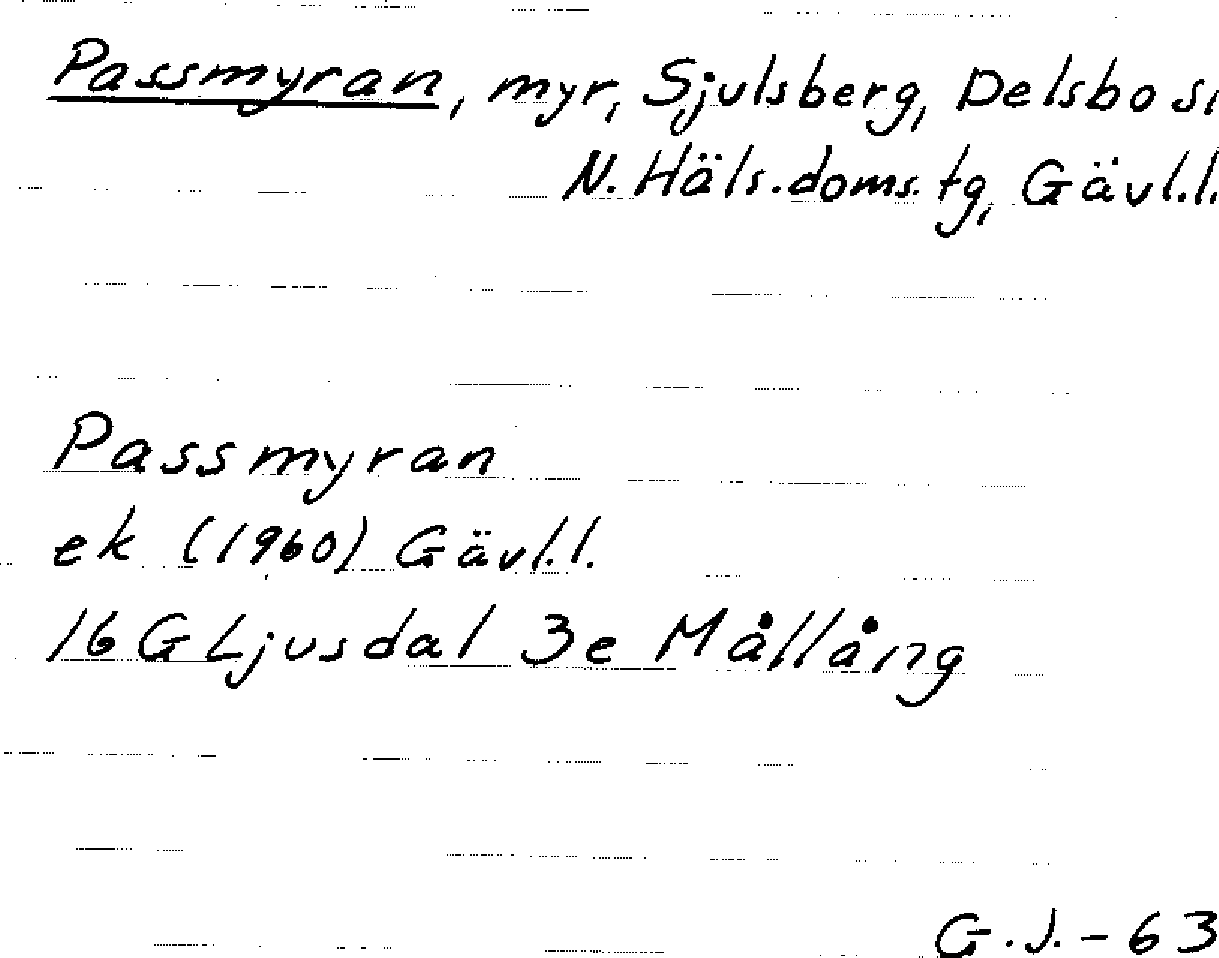 Passmyran, myr, Sjulsberg, Delsbo s,
N. Häls. doms. tg, Gävl.l.
Passmyran
ek (1960) Gävl.l.
16 G Ljusdal 3e Mållång
G.J. - 63